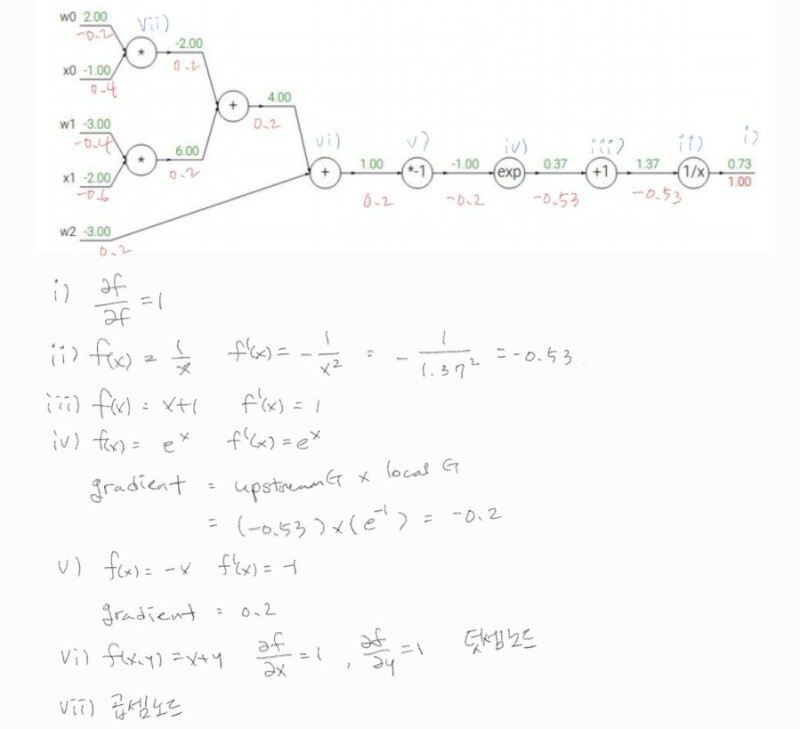 w0 2.00 vii)
-0.2 * -2.00
x0 -1.00 0.2
0.4 + 4.00
w1 -3.00 0.2
-0.4 * 6.00 vi) v) iv) iii) ii) i)
x1 -2.00 0.2 + 1.00 *-1 -1.00 exp 0.37 +1 1.37 1/x 0.73
-0.6 0.2 -0.2 -0.53 -0.53 1.00
w2 -3.00
0.2
i) ∂f/∂f = 1
ii) f(x) = 1/x f'(x) = - 1/x² = - 1/1.37² = -0.53
iii) f(x) = x+1 f'(x) = 1
iv) f(x) = e^x f'(x) = e^x
gradient = upstreamG x local G
= (-0.53) x (e^-1) = -0.2
v) f(x) = -x f'(x) = -1
gradient = 0.2
vi) f(x,y) = x+y ∂f/∂x = 1, ∂f/∂y = 1 덧셈노드
vii) 곱셈노드